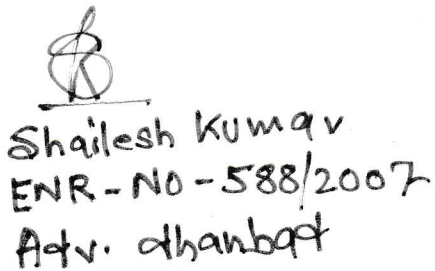 Shailesh Kumar
ENR-NO-588/2007
Adv. dhanbad